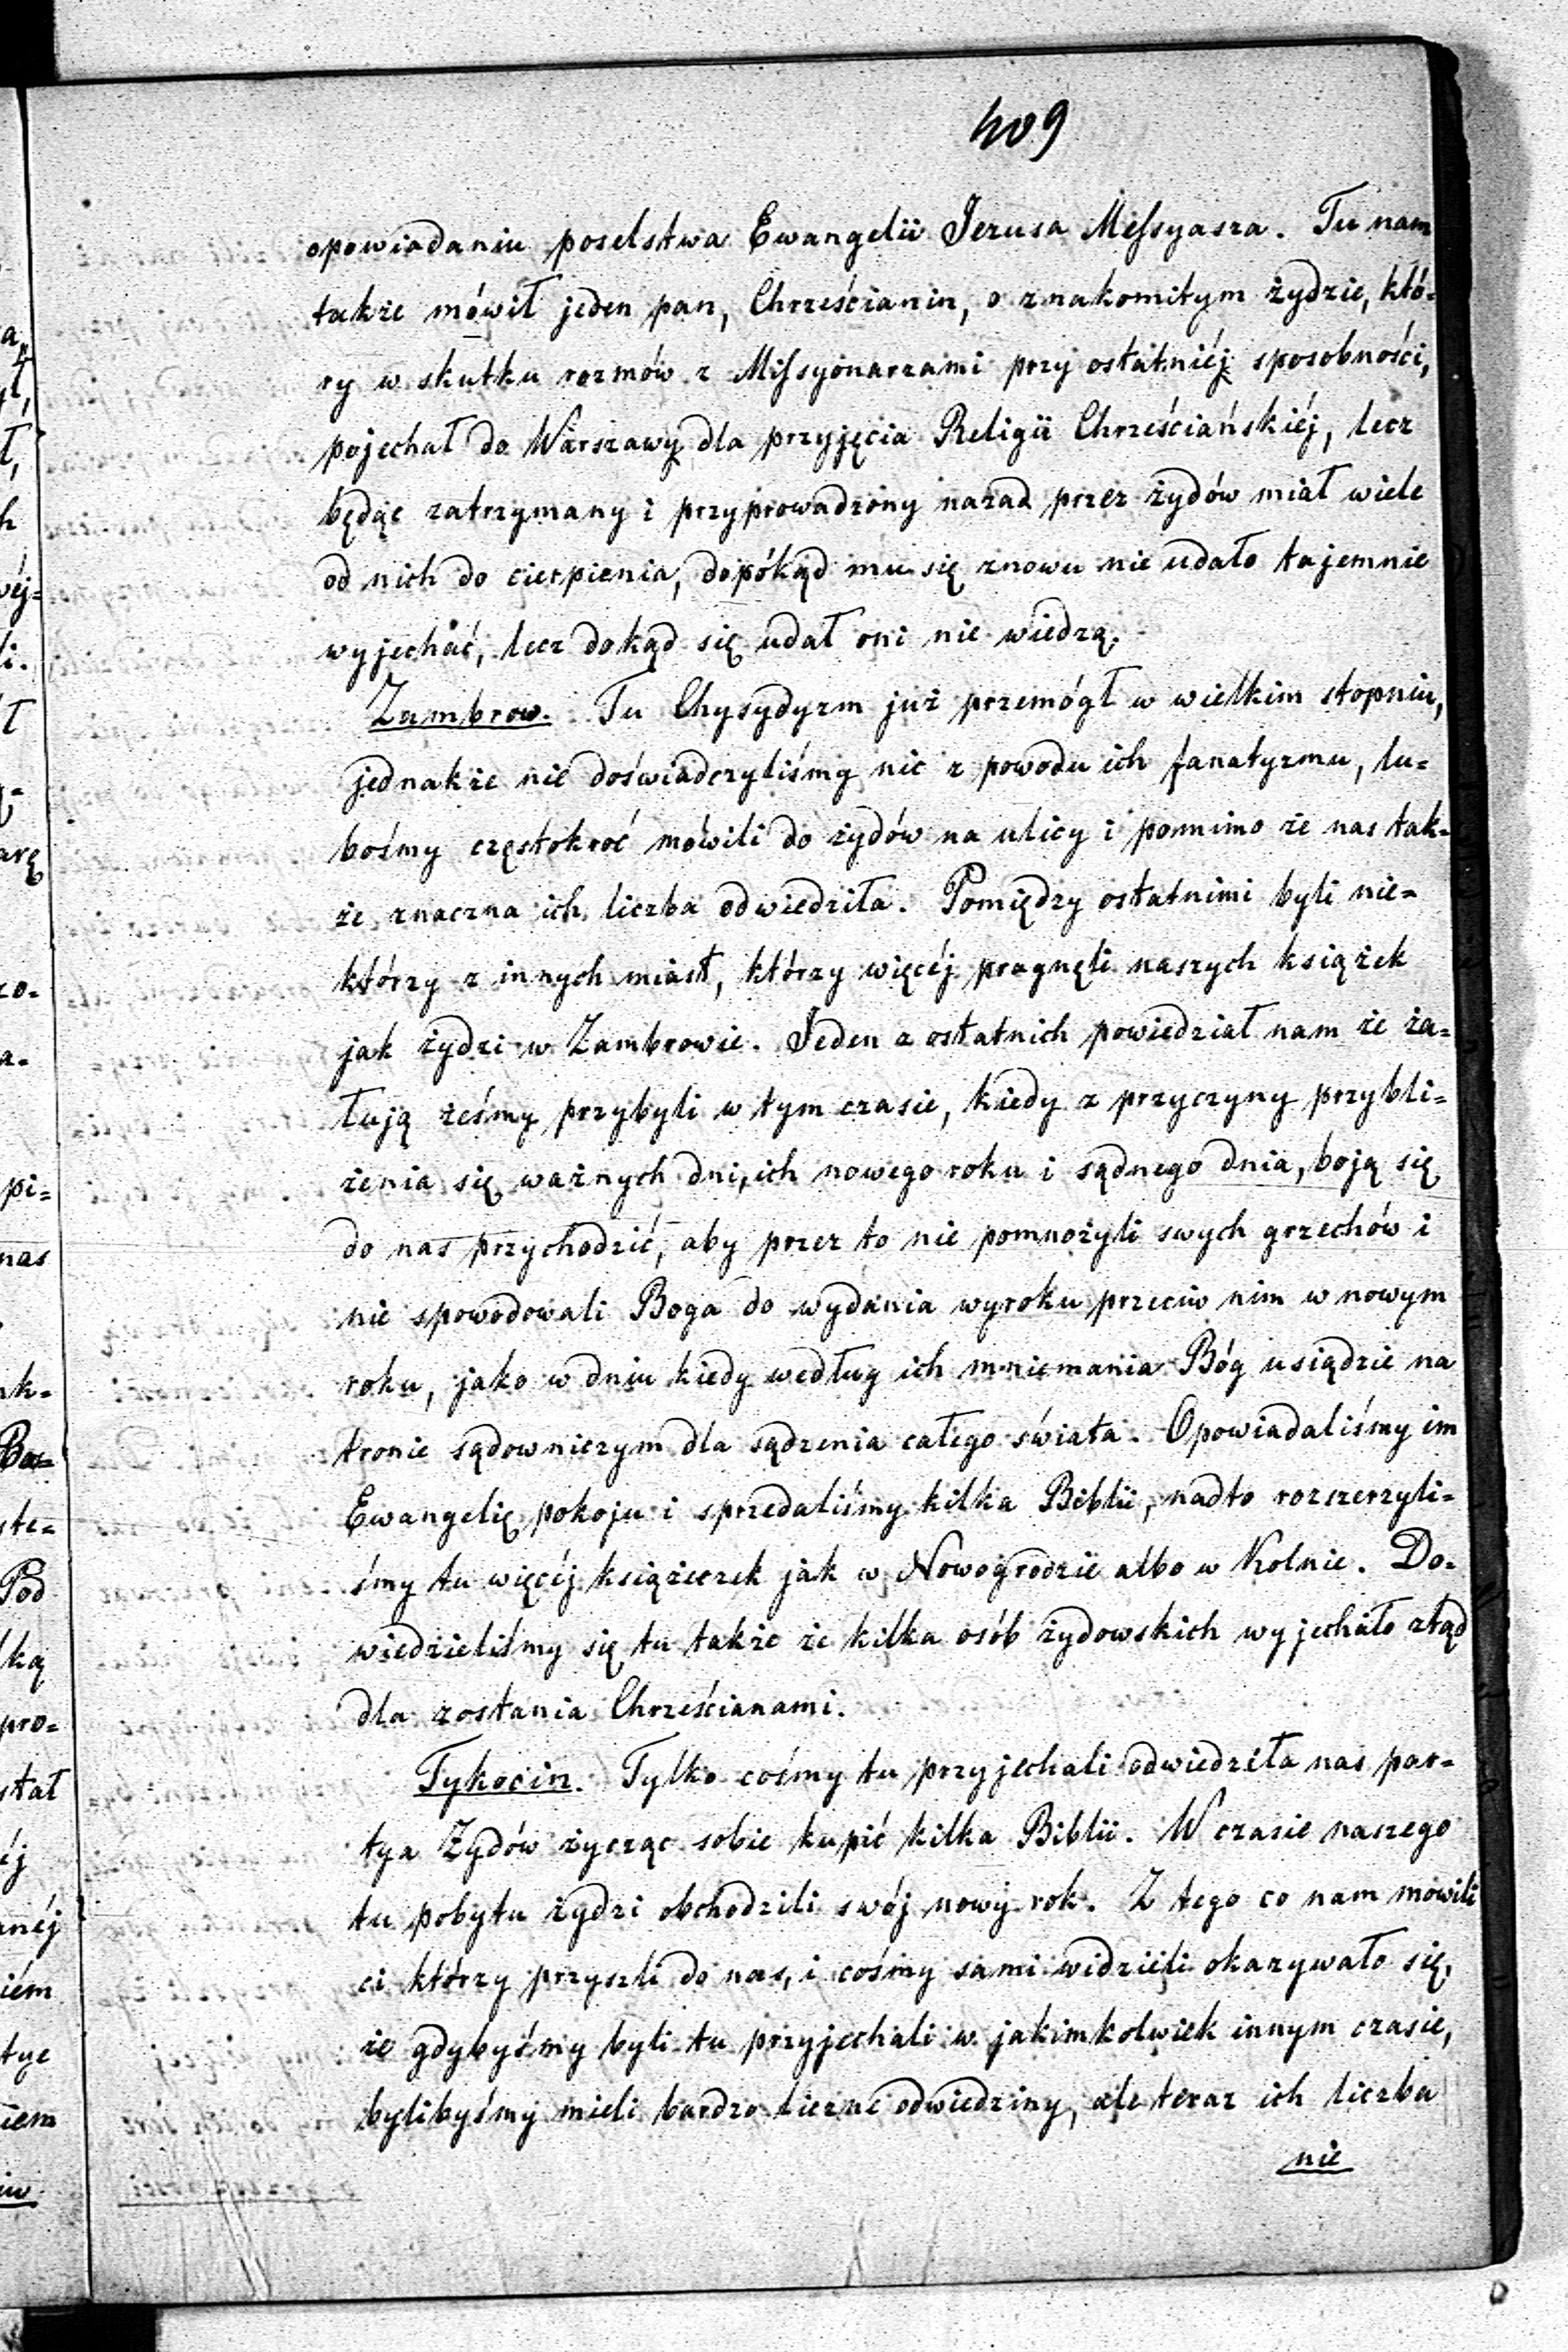 409
opowiadaniu poselstwa Ewangelii Jezusa Messyasza. Tu nam
także mówił jeden pan, Chrześcianin, o znakomitym żydzie, któ-
ry w skutku rozmów z Missyonarzami przy ostatniéj sposobności,
pojechał do Warszawy dla przyjęcia Religii Chrześciańskiéj, lecz
będąc zatrzymany i przyprowadzony nazad przez żydów miał wiele
od nich do cierpienia, dopókąd mu się znowu nie udało tajemnie
wyjechać, lecz dokąd się udał oni nie wiedzą.
Zambrow. Tu Chysydyzm już przemógł w wielkim stopniu,
jednakże nie doświadczyliśmy nic z powodu ich fanatyzmu, lu-
bośmy częstokroć mówili do żydów na ulicy i pomimo że nas tak-
że znaczna ich liczba odwiedziła. Pomiędzy ostatnimi byli nie-
którzy z innych miast, którzy więcéj pragnęli naszych książek
jak żydzi w Zambrowie. Jeden z ostatnich powiedział nam że ża-
łują żeśmy przybyli w tym czasie, kiedy z przyczyny przybli-
żenia się ważnych dni, ich nowego roku i sądnego dnia, boją się
do nas przychodzić, aby przez to nie pomnożyli swych grzechów i
nie spowodowali Boga do wydania wyroku przeciw nim w nowym
roku, jako w dniu kiedy według ich mniemania Bóg usiądzie na
tronie sądowniczym dla sądzenia całego świata. Opowiadaliśmy im
Ewangelię pokoju i sprzedaliśmy kilka Biblii, nadto rozszerzyli-
śmy tu więcéj książeczek jak w Nowogrodzie albo w Kolnie. Do-
wiedzieliśmy się tu także że kilka osób żydowskich wyjechało ztąd
dla zostania Chrześcianami.
Tykocin. Tylko cośmy tu przyjechali odwiedziła nas par-
tya Żydów życząc sobie kupić kilka Biblii. W czasie naszego
tu pobytu żydzi obchodzili swój nowy rok. Z tego co nam mówili
ci którzy przyszli do nas, i cośmy sami widzieli okazywało się,
że gdybyśmy byli tu przyjechali w jakimkolwiek innym czasie,
bylibyśmy mieli bardzo liczne odwiedziny, ale teraz ich liczba
nie